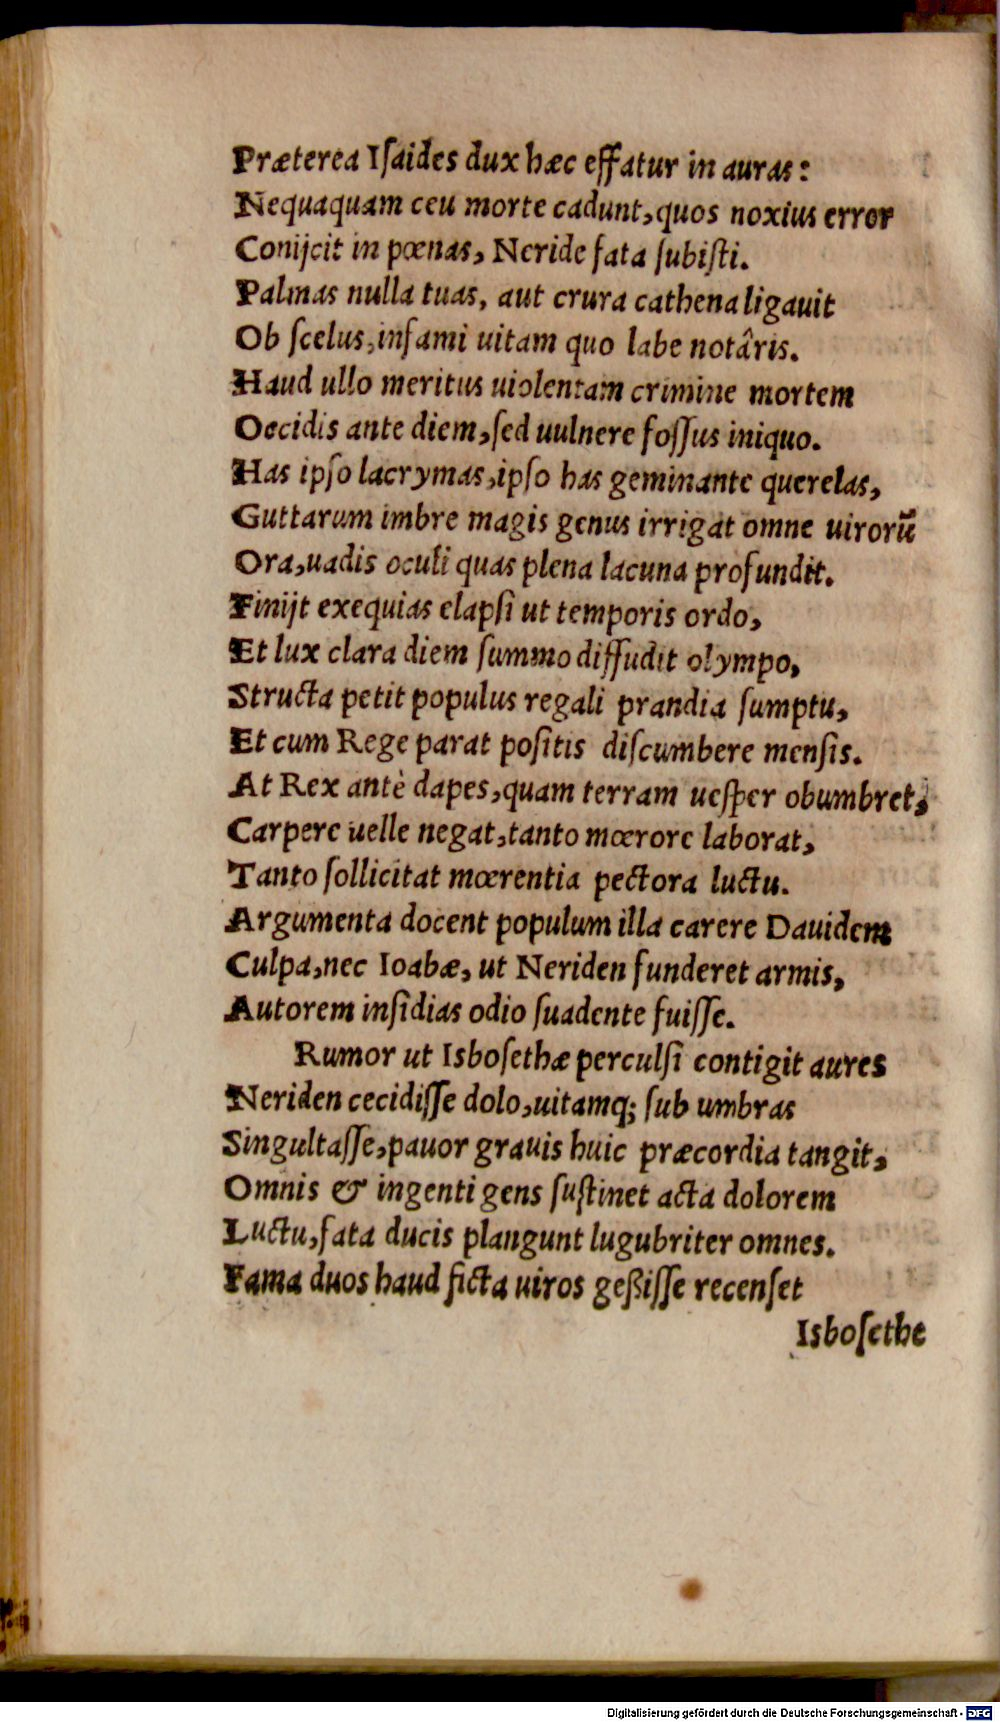 Præterea Isaides dux hæc effatur in auras:
Nequaquam ceu morte cadunt, quos noxius error
Conijcit in pœnas, Neride fata subisti.
Palmas nulla tuas, aut crura cathena ligauit
Ob scelus, infami uitam quo labe notâris.
Haud ullo meritus uiolentam crimine mortem
Occidis ante diem, sed uulnere fossus iniquo.
Has ipso lacrymas, ipso has geminante querelas,
Guttarum imbre magis genus irrigat omne uirorū
Ora, uadis oculi quas plena lacuna profundit.
Finijt exequias elapsi ut temporis ordo,
Et lux clara diem summo diffudit olympo,
Structa petit populus regali prandia sumptu,
Et cum Rege parat positis discumbere mensis.
At Rex antè dapes, quam terram uesper obumbret,
Carpere uelle negat, tanto mœrore laborat,
Tanto sollicitat mœrentia pectora luctu.
Argumenta docent populum illa carere Dauidem
Culpa, nec Ioabæ, ut Neriden funderet armis,
Autorem insidias odio suadente fuisse.
Rumor ut Isbosethæ perculsi contigit aures
Neriden cecidisse dolo, uitamq; sub umbras
Singultasse, pauor grauis huic præcordia tangit,
Omnis & ingenti gens sustinet acta dolorem
Luctu, fata ducis plangunt lugubriter omnes.
Fama duos haud ficta uiros geßisse recenset
Isbosethe
Digitalisierung gefördert durch die Deutsche Forschungsgemeinschaft - DFG